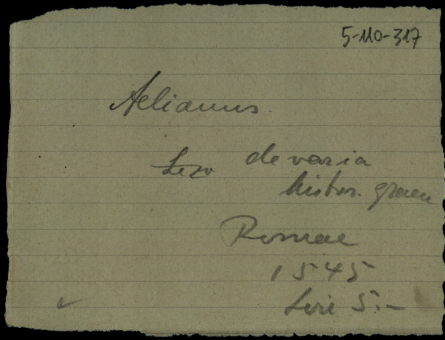 5-110-317
Aelianus.
de varia
histor. graece
Romae
1545
Lire 5.-